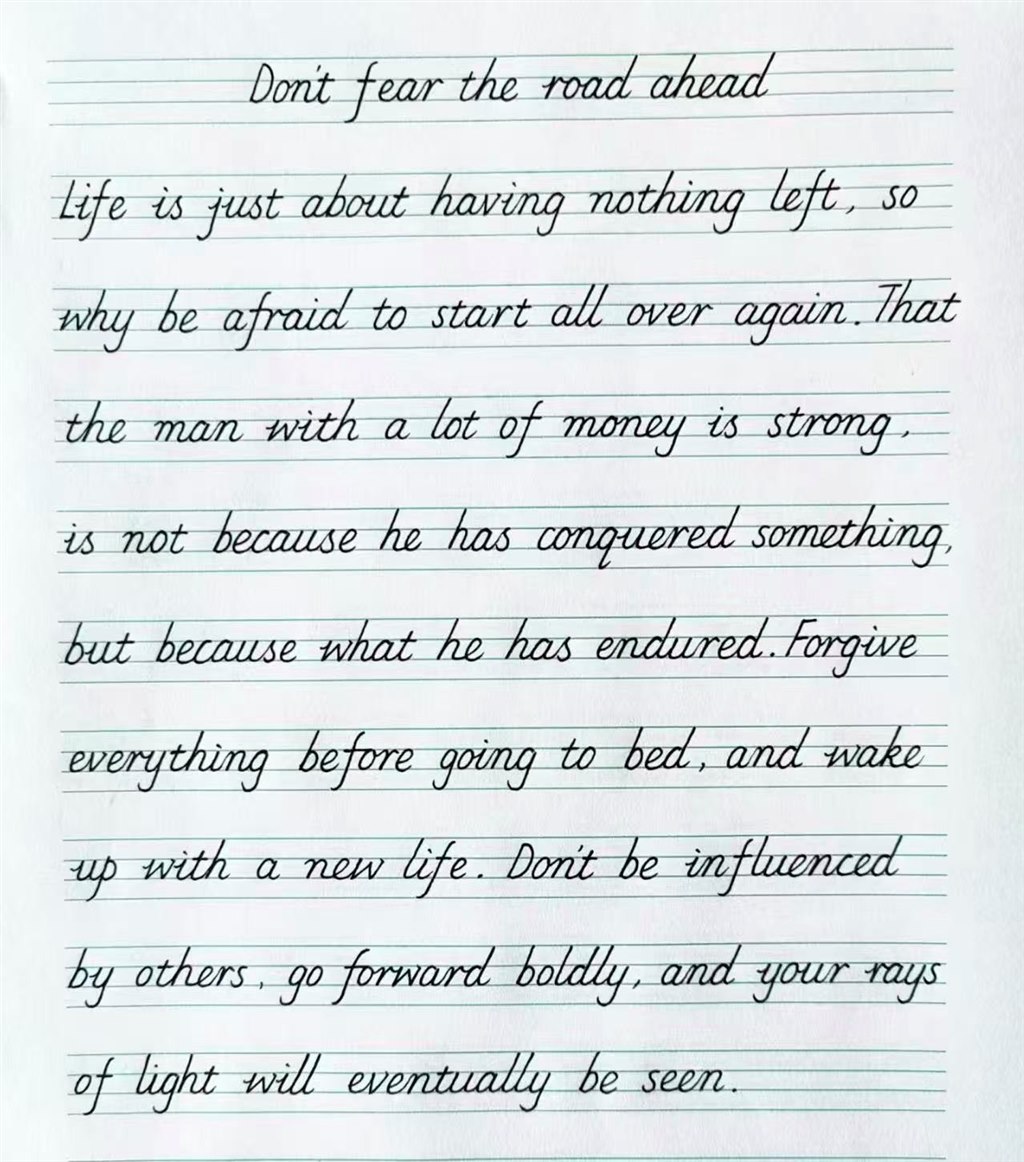 Don't fear the road ahead
Life is just about having nothing left, so
why be afraid to start all over again. That
the man with a lot of money is strong,
is not because he has conquered something,
but because what he has endured. Forgive
everything before going to bed, and wake
up with a new life. Don't be influenced
by others, go forward boldly, and your rays
of light will eventually be seen.